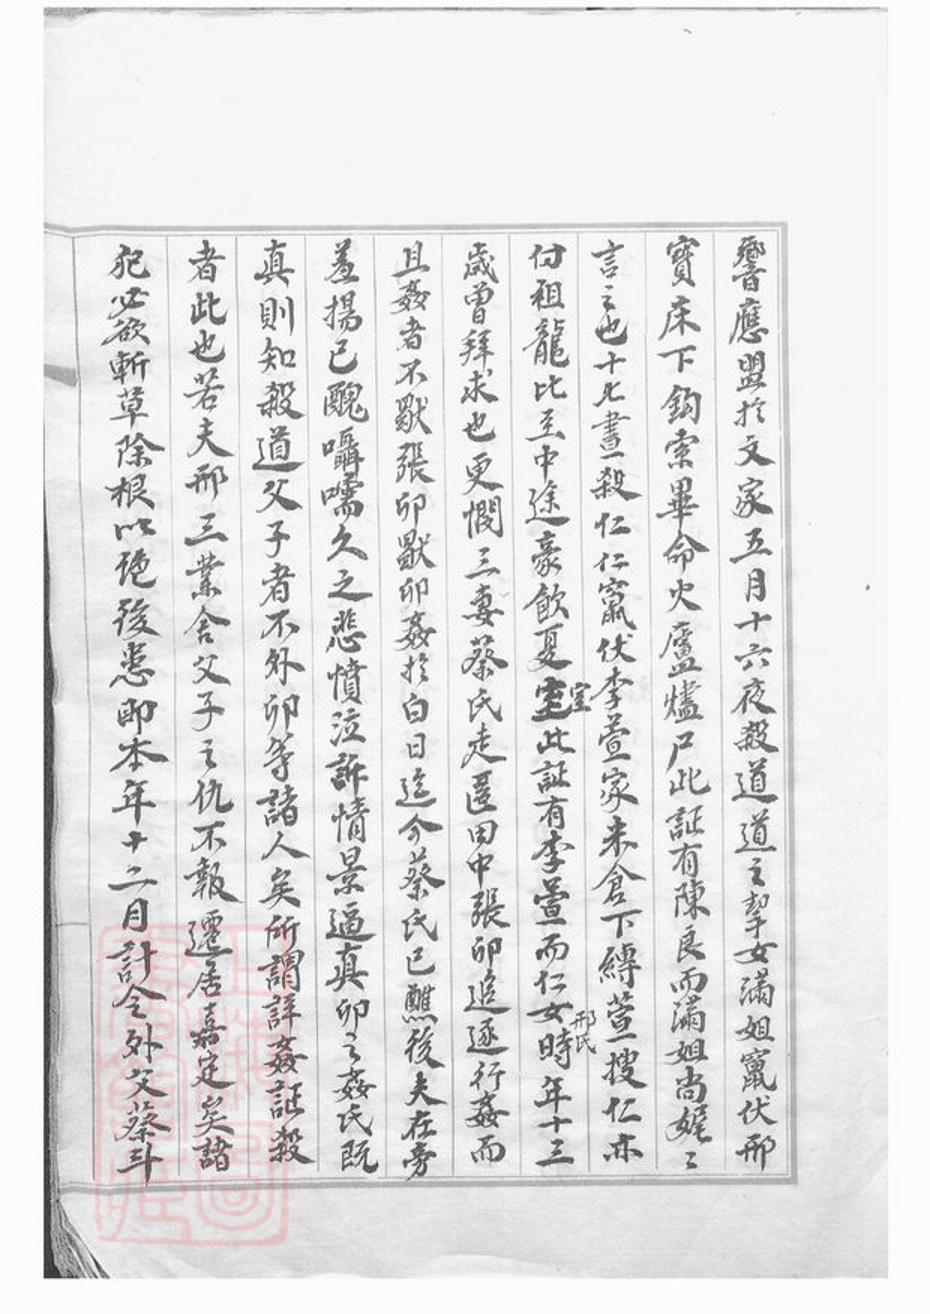 響應盟於文家五月十六夜殺道道之挈女滿姐竄伏邢
寶床下鈎索畢命火廬燼尸此証有陳良而滿姐尚娓〻
言之也十七晝殺仁仁竄伏李萱家米倉下縛萱搜仁亦
付祖龍比至中途豪飲夏室室此証有李萱而仁女邢氏時年十三
歲曾拜求也更憫三妻蔡氏走匿田中張卯追逐行姦而
且姦者不歇張卯歇卯姦於白日迄今蔡氏已醮後夫在旁
羞揚已醜囁嚅久之悲憤泣訴情景逼真卯之姦氏既
真則知殺道父子者不外卯等諸人矣所謂詳姦証殺
者此也若夫邢三業舍父子之仇不報遷居嘉定矣諸
犯必欲斬草除根以絕後患即本年十二月計令外父蔡斗